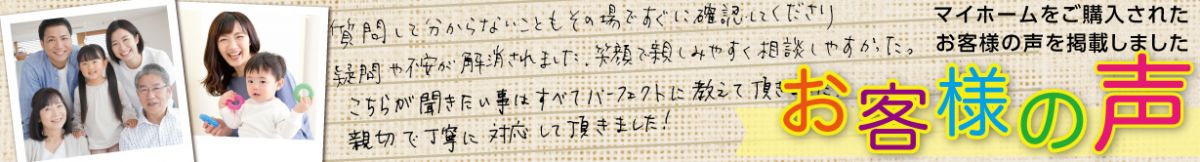 質問して分からないこともその場ですぐに確認してくださり
疑問や不安が解消されました。笑顔で親しみやすく相談しやすかったっ
こちらが聞きたい事はすべてパーフェクトに教えて頂き
親切で丁寧に対応して頂きました!
マイホームをご購入された
お客様の声を掲載しました
お客様の声